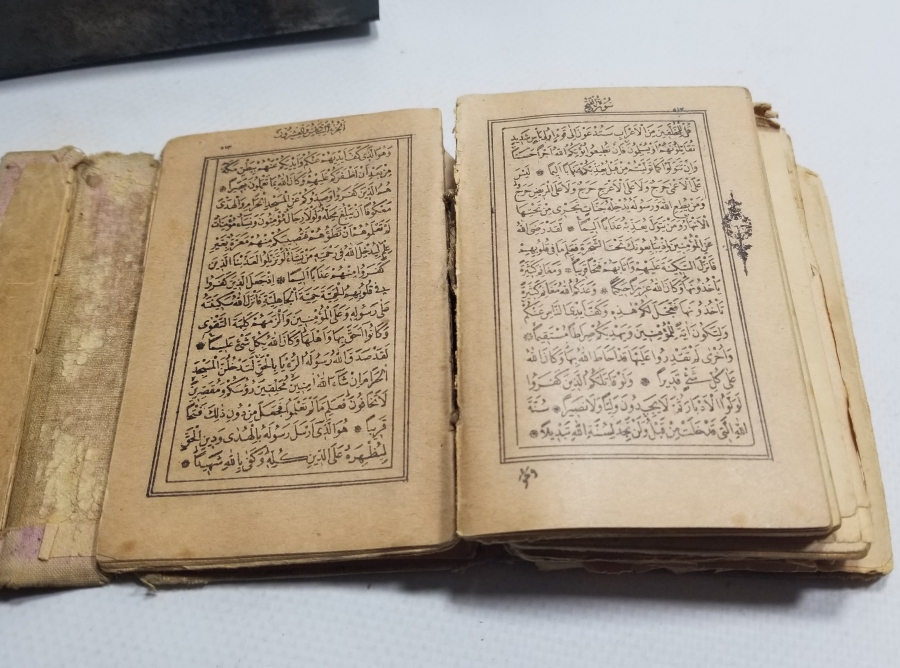 سُورَةُ الْفَتْحِ ٥١٢
قُلْ لِلْمُخَلَّفِينَ مِنَ الْاَعْرَابِ سَتُدْعَوْنَ اِلٰى قَوْمٍ اُولِى بَاْسٍ شَدِيدٍ
تُقَاتِلُونَهُمْ اَوْ يُسْلِمُونَ فَاِنْ تُطِيعُوا يُؤْتِكُمُ اللّٰهُ اَجْرًا حَسَنًا
وَاِنْ تَتَوَلَّوْا كَمَا تَوَلَّيْتُمْ مِنْ قَبْلُ يُعَذِّبْكُمْ عَذَابًا اَلِيمًا * لَيْسَ
عَلَى الْاَعْمٰى حَرَجٌ وَلَا عَلَى الْاَعْرَجِ حَرَجٌ وَلَا عَلَى الْمَرِيضِ حَرَجٌ
وَمَنْ يُطِعِ اللّٰهَ وَرَسُولَهُ يُدْخِلْهُ جَنَّاتٍ تَجْرِى مِنْ تَحْتِهَا
الْاَنْهَارُ وَمَنْ يَتَوَلَّ يُعَذِّبْهُ عَذَابًا اَلِيمًا * لَقَدْ رَضِىَ اللّٰهُ
عَنِ الْمُؤْمِنِينَ اِذْ يُبَايِعُونَكَ تَحْتَ الشَّجَرَةِ فَعَلِمَ مَا فِى قُلُوبِهِمْ
فَاَنْزَلَ السَّكِينَةَ عَلَيْهِمْ وَاَثَابَهُمْ فَتْحًا قَرِيبًا * وَمَغَانِمَ كَثِيرَةً
يَاْخُذُونَهَا وَكَانَ اللّٰهُ عَزِيزًا حَكِيمًا * وَعَدَكُمُ اللّٰهُ مَغَانِمَ كَثِيرَةً
تَاْخُذُونَهَا فَعَجَّلَ لَكُمْ هٰذِهِ وَكَفَّ اَيْدِىَ النَّاسِ عَنْكُمْ
وَلِتَكُونَ اٰيَةً لِلْمُؤْمِنِينَ وَيَهْدِيَكُمْ صِرَاطًا مُسْتَقِيمًا *
وَاُخْرٰى لَمْ تَقْدِرُوا عَلَيْهَا قَدْ اَحَاطَ اللّٰهُ بِهَا وَكَانَ اللّٰهُ
عَلٰى كُلِّ شَىْءٍ قَدِيرًا * وَلَوْ قَاتَلَكُمُ الَّذِينَ كَفَرُوا
لَوَلَّوُا الْاَدْبَارَ ثُمَّ لَا يَجِدُونَ وَلِيًّا وَلَا نَصِيرًا * سُنَّةَ
اللّٰهِ الَّتِى قَدْ خَلَتْ مِنْ قَبْلُ وَلَنْ تَجِدَ لِسُنَّةِ اللّٰهِ تَبْدِيلًا *
وَهُوَ
اَلْجُزْءُ السَّادِسُ وَالْعِشْرُونَ ٥١٣
وَهُوَ الَّذِى كَفَّ اَيْدِيَهُمْ عَنْكُمْ وَاَيْدِيَكُمْ عَنْهُمْ بِبَطْنِ مَكَّةَ
مِنْ بَعْدِ اَنْ اَظْفَرَكُمْ عَلَيْهِمْ وَكَانَ اللّٰهُ بِمَا تَعْمَلُونَ بَصِيرًا *
هُمُ الَّذِينَ كَفَرُوا وَصَدُّوكُمْ عَنِ الْمَسْجِدِ الْحَرَامِ وَالْهَدْىَ
مَعْكُوفًا اَنْ يَبْلُغَ مَحِلَّهُ وَلَوْلَا رِجَالٌ مُؤْمِنُونَ وَنِسَاءٌ مُؤْمِنَاتٌ
لَمْ تَعْلَمُوهُمْ اَنْ تَطَؤُهُمْ فَتُصِيبَكُمْ مِنْهُمْ مَعَرَّةٌ بِغَيْرِ
عِلْمٍ لِيُدْخِلَ اللّٰهُ فِى رَحْمَتِهِ مَنْ يَشَاءُ لَوْ تَزَيَّلُوا لَعَذَّبْنَا الَّذِينَ
كَفَرُوا مِنْهُمْ عَذَابًا اَلِيمًا * اِذْ جَعَلَ الَّذِينَ كَفَرُوا
فِى قُلُوبِهِمُ الْحَمِيَّةَ حَمِيَّةَ الْجَاهِلِيَّةِ فَاَنْزَلَ اللّٰهُ سَكِينَتَهُ
عَلٰى رَسُولِهِ وَعَلَى الْمُؤْمِنِينَ وَاَلْزَمَهُمْ كَلِمَةَ التَّقْوٰى
وَكَانُوا اَحَقَّ بِهَا وَاَهْلَهَا وَكَانَ اللّٰهُ بِكُلِّ شَىْءٍ عَلِيمًا *
لَقَدْ صَدَقَ اللّٰهُ رَسُولَهُ الرُّءْيَا بِالْحَقِّ لَتَدْخُلُنَّ الْمَسْجِدَ
الْحَرَامَ اِنْ شَاءَ اللّٰهُ اٰمِنِينَ مُحَلِّقِينَ رُؤُسَكُمْ وَمُقَصِّرِينَ
لَا تَخَافُونَ فَعَلِمَ مَا لَمْ تَعْلَمُوا فَجَعَلَ مِنْ دُونِ ذٰلِكَ فَتْحًا
قَرِيبًا * هُوَ الَّذِى اَرْسَلَ رَسُولَهُ بِالْهُدٰى وَدِينِ الْحَقِّ
لِيُظْهِرَهُ عَلَى الدِّينِ كُلِّهِ وَكَفٰى بِاللّٰهِ شَهِيدًا *